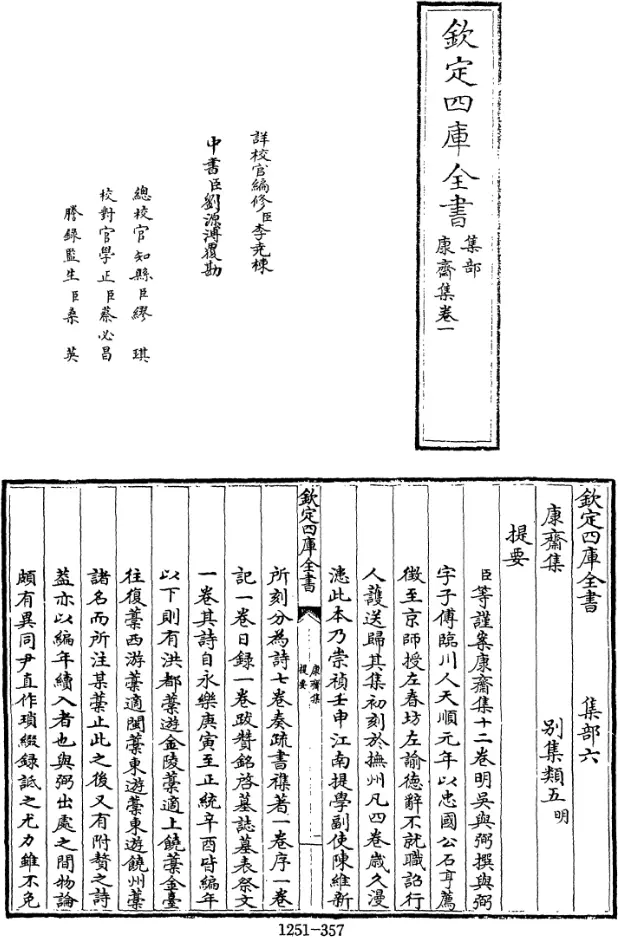 欽定四庫全書
集部
康齋集卷一
詳校官編修臣李堯棟
中書臣劉源溥覆勘
總校官知縣臣繆琪
校對官學正臣蔡必昌
謄錄監生臣桑英
欽定四庫全書 集部六
康齋集 別集類五明
提要
臣等謹案康齋集十二卷明吳與弼撰與弼
字子傅臨川人天順元年以忠國公石亨薦
徵至京師授左春坊左諭德辭不就職詔行
人護送歸其集初刻於撫州凡四卷歲久漫
漶此本乃崇禎壬申江南提學副使陳維新
欽定四庫全書
康齋集
提要
一
所刻分為詩七卷奏疏書襍著一卷序一卷
記一卷日録一卷跋贊銘啓墓誌墓表祭文
一卷其詩自永樂庚寅至正統辛酉皆編年
以下則有洪都藁遊金陵藁適上饒藁金臺
往復藁西游藁適閩藁東遊藁東遊饒州藁
諸名而所注某藁止此之後又有附贅之詩
葢亦以編年續入者也與弼出處之間物論
頗有異同尹直作瑣綴録詆之尤力雖不免
1251-357